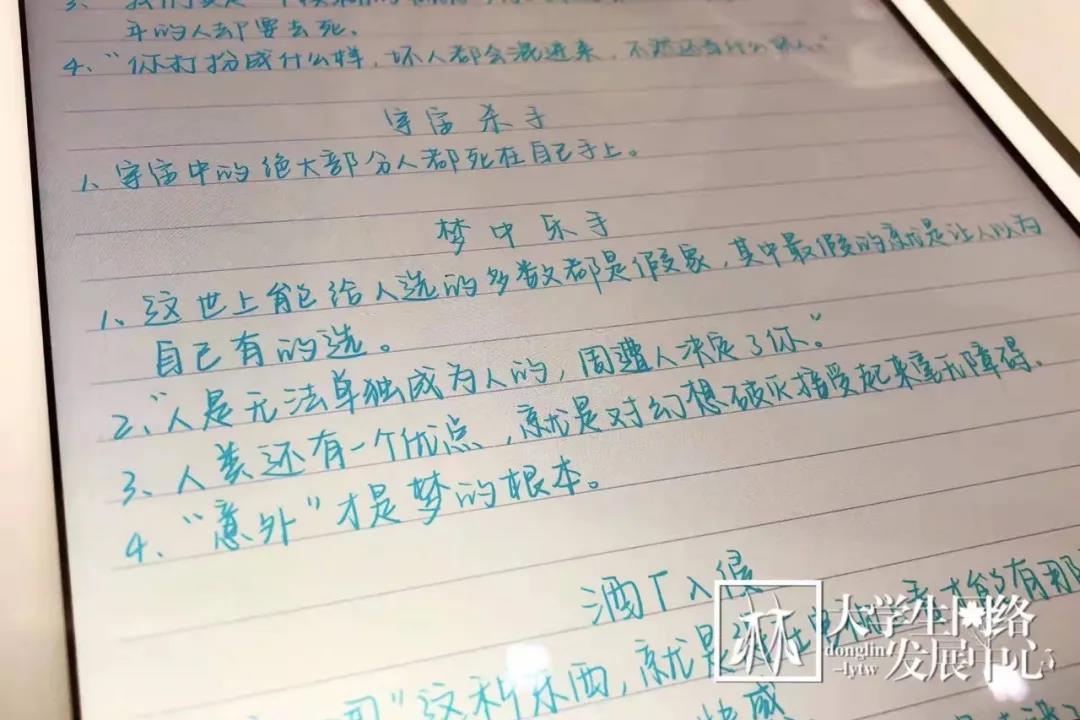 3、我们
斗的人却要去死。
4、"你打扮成什么样，坏人都会混进来，不然还当什么坏人。"
宇宙杀手
1、宇宙中的绝大部分人都死在自己手上。
梦中乐手
1、这世上能给人选的多数都是假象，其中最假的就是让人以为
自己有的选。
2、"人是无法单独成为人的，周遭人决定了你。"
3、人类还有一个优点，就是对幻想破灭接受起来毫无障碍。
4、"意外"才是梦的根本。
酒厂入侵
才能有那
"这种东西，就是
快感
林 大学生网络
发展中心
donglin
-lytw